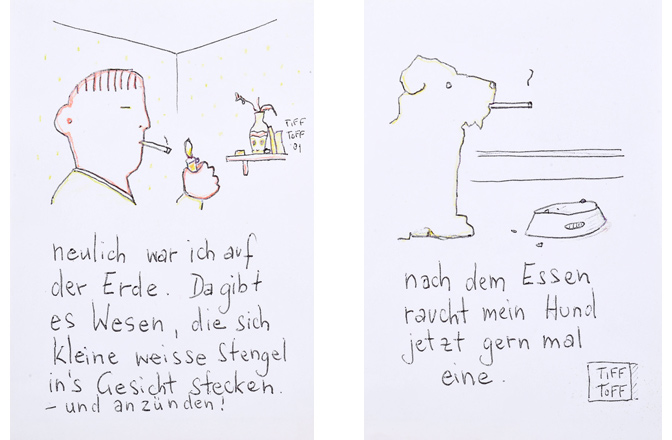 TIFF
TOFF
01
neulich war ich auf
der Erde. Da gibt
es Wesen, die sich
kleine weisse Stengel
in's Gesicht stecken.
- und anzünden!
nach dem Essen
raucht mein Hund
jetzt gern mal
eine.
TIFF
TOFF